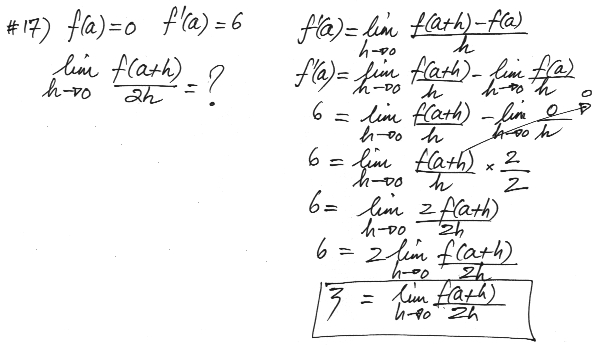 #17) f(a)=0 f'(a)=6
lim h→0 f(a+h)/2h = ?
f'(a) = lim h→0 (f(a+h)-f(a))/h
f'(a) = lim h→0 f(a+h)/h - lim h→0 f(a)/h
6 = lim h→0 f(a+h)/h - lim h→0 0/h → 0
6 = lim h→0 f(a+h)/h × 2/2
6 = lim h→0 2f(a+h)/2h
6 = 2 lim h→0 f(a+h)/2h
3 = lim h→0 f(a+h)/2h